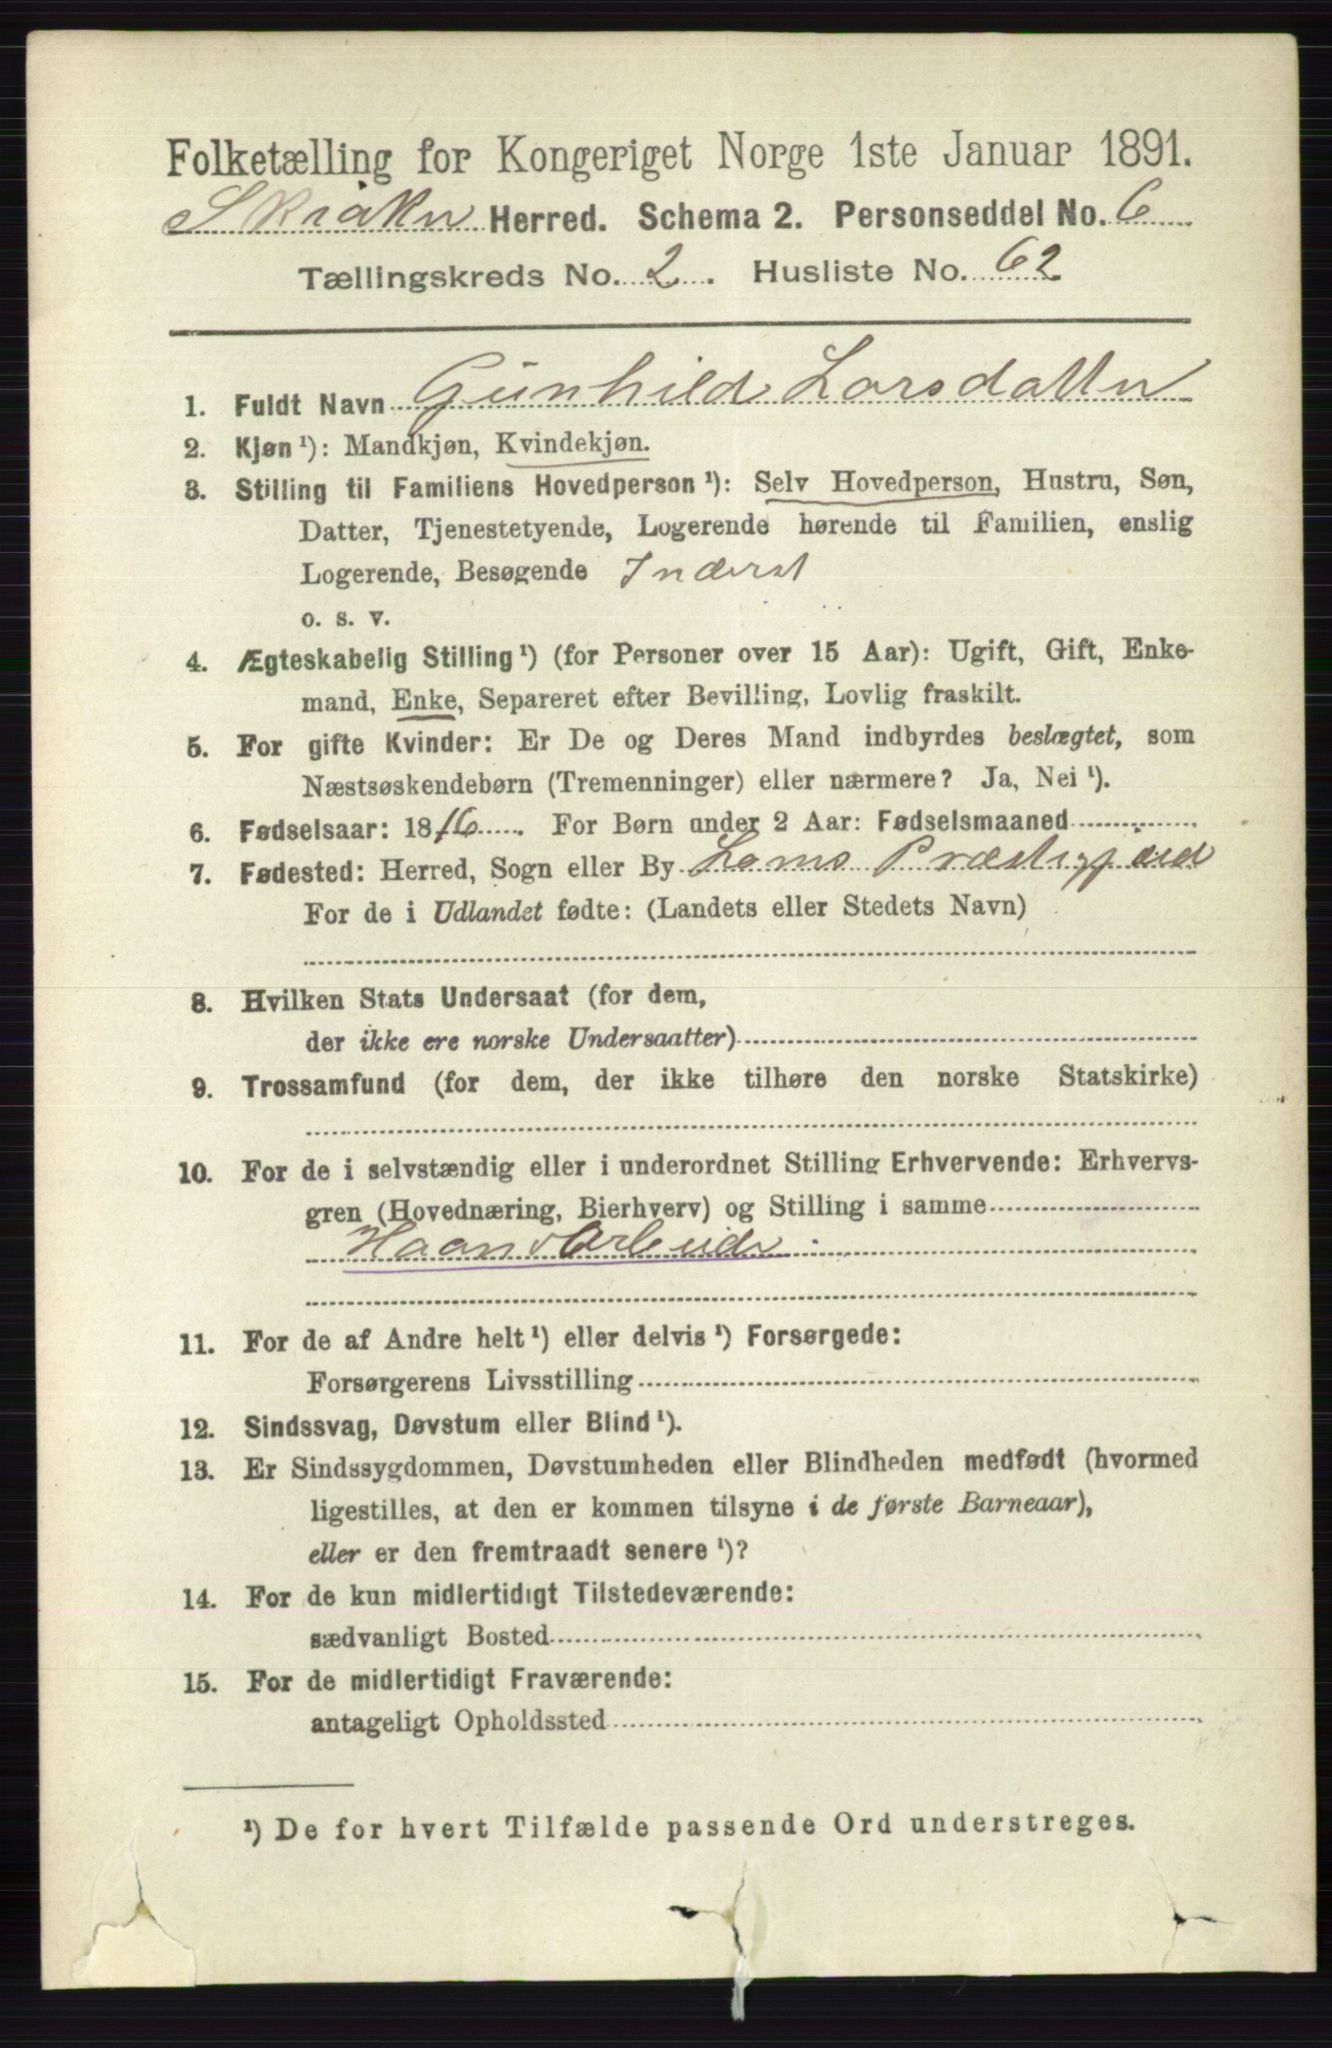 Folketælling for Kongeriget Norge 1ste Januar 1891.
Skiaker Herred. Schema 2. Personseddel No. 6
Tællingskreds No. 2. Husliste No. 62
1. Fuldt Navn Gunhild Larsdatter
2. Kjøn ¹): Mandkjøn, Kvindekjøn.
3. Stilling til Familiens Hovedperson ¹): Selv Hovedperson, Hustru, Søn,
Datter, Tjenestetyende, Logerende hørende til Familien, enslig
Logerende, Besøgende Inderst
o. s. v.
4. Ægteskabelig Stilling ¹) (for Personer over 15 Aar): Ugift, Gift, Enke-
mand, Enke, Separeret efter Bevilling, Lovlig fraskilt.
5. For gifte Kvinder: Er De og Deres Mand indbyrdes beslægtet, som
Næstsøskendebørn (Tremenninger) eller nærmere? Ja, Nei ¹).
6. Fødselsaar: 1816. For Børn under 2 Aar: Fødselsmaaned
7. Fødested: Herred, Sogn eller By Loms Præstegjæld
For de i Udlandet fødte: (Landets eller Stedets Navn)
8. Hvilken Stats Undersaat (for dem,
der ikke ere norske Undersaatter)
9. Trossamfund (for dem, der ikke tilhøre den norske Statskirke)
10. For de i selvstændig eller i underordnet Stilling Erhvervende: Erhvervs-
gren (Hovednæring, Bierhverv) og Stilling i samme
Haandarbeide
11. For de af Andre helt ¹) eller delvis ¹) Forsørgede:
Forsørgerens Livsstilling
12. Sindssvag, Døvstum eller Blind ¹).
13. Er Sindssygdommen, Døvstumheden eller Blindheden medfødt (hvormed
ligestilles, at den er kommen tilsyne i de første Barneaar),
eller er den fremtraadt senere ¹)?
14. For de kun midlertidigt Tilstedeværende:
sædvanligt Bosted
15. For de midlertidigt Fraværende:
antageligt Opholdssted
¹) De for hvert Tilfælde passende Ord understreges.